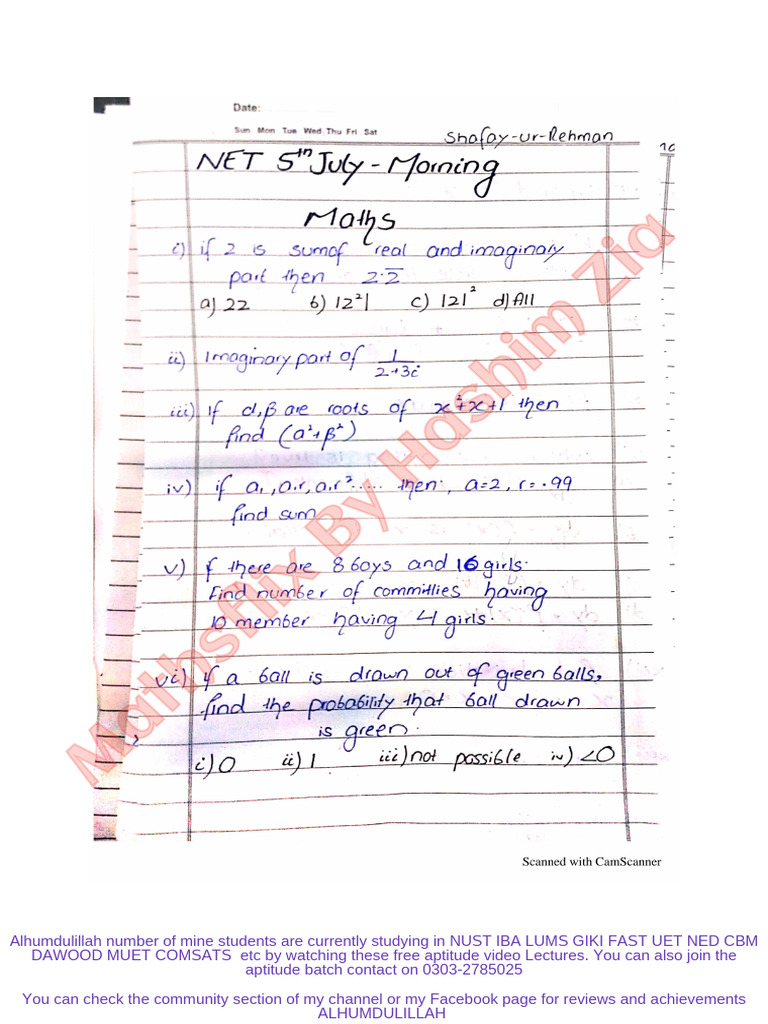 Date:
Sun Mon Tue Wed Thu Fri Sat
Shafay-ur-Rehman
NET 5th July - Morning
Maths
i) if z is sum of real and imaginary
part then z.z̅
a) zz b) |z²| c) |z|² d) All
ii) Imaginary part of 1/2+3i
iii) If α,β are roots of x²+x+1 then
find (α²+β²)
iv) if a₁, a₁r, a₁r²..... then, a=2, r=.99
find sum
v) If there are 8 boys and 16 girls.
Find number of committies having
10 member having 4 girls.
vi) if a ball is drawn out of green balls,
find the probability that ball drawn
is green.
i) 0 ii) 1 iii) not possible iv) <0
Mathsflix By Hashim Zia
Scanned with CamScanner
Alhumdulillah number of mine students are currently studying in NUST IBA LUMS GIKI FAST UET NED CBM
DAWOOD MUET COMSATS etc by watching these free aptitude video Lectures. You can also join the
aptitude batch contact on 0303-2785025
You can check the community section of my channel or my Facebook page for reviews and achievements
ALHUMDULILLAH